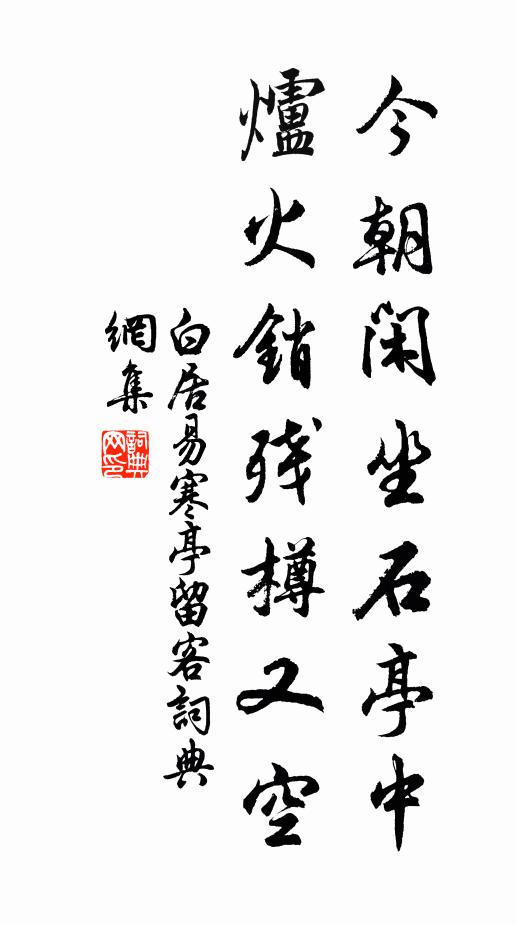 今朝閑坐石亭中
爐火銷残樽又空
白居易寒亭留客詞典
網集
詞典
网印